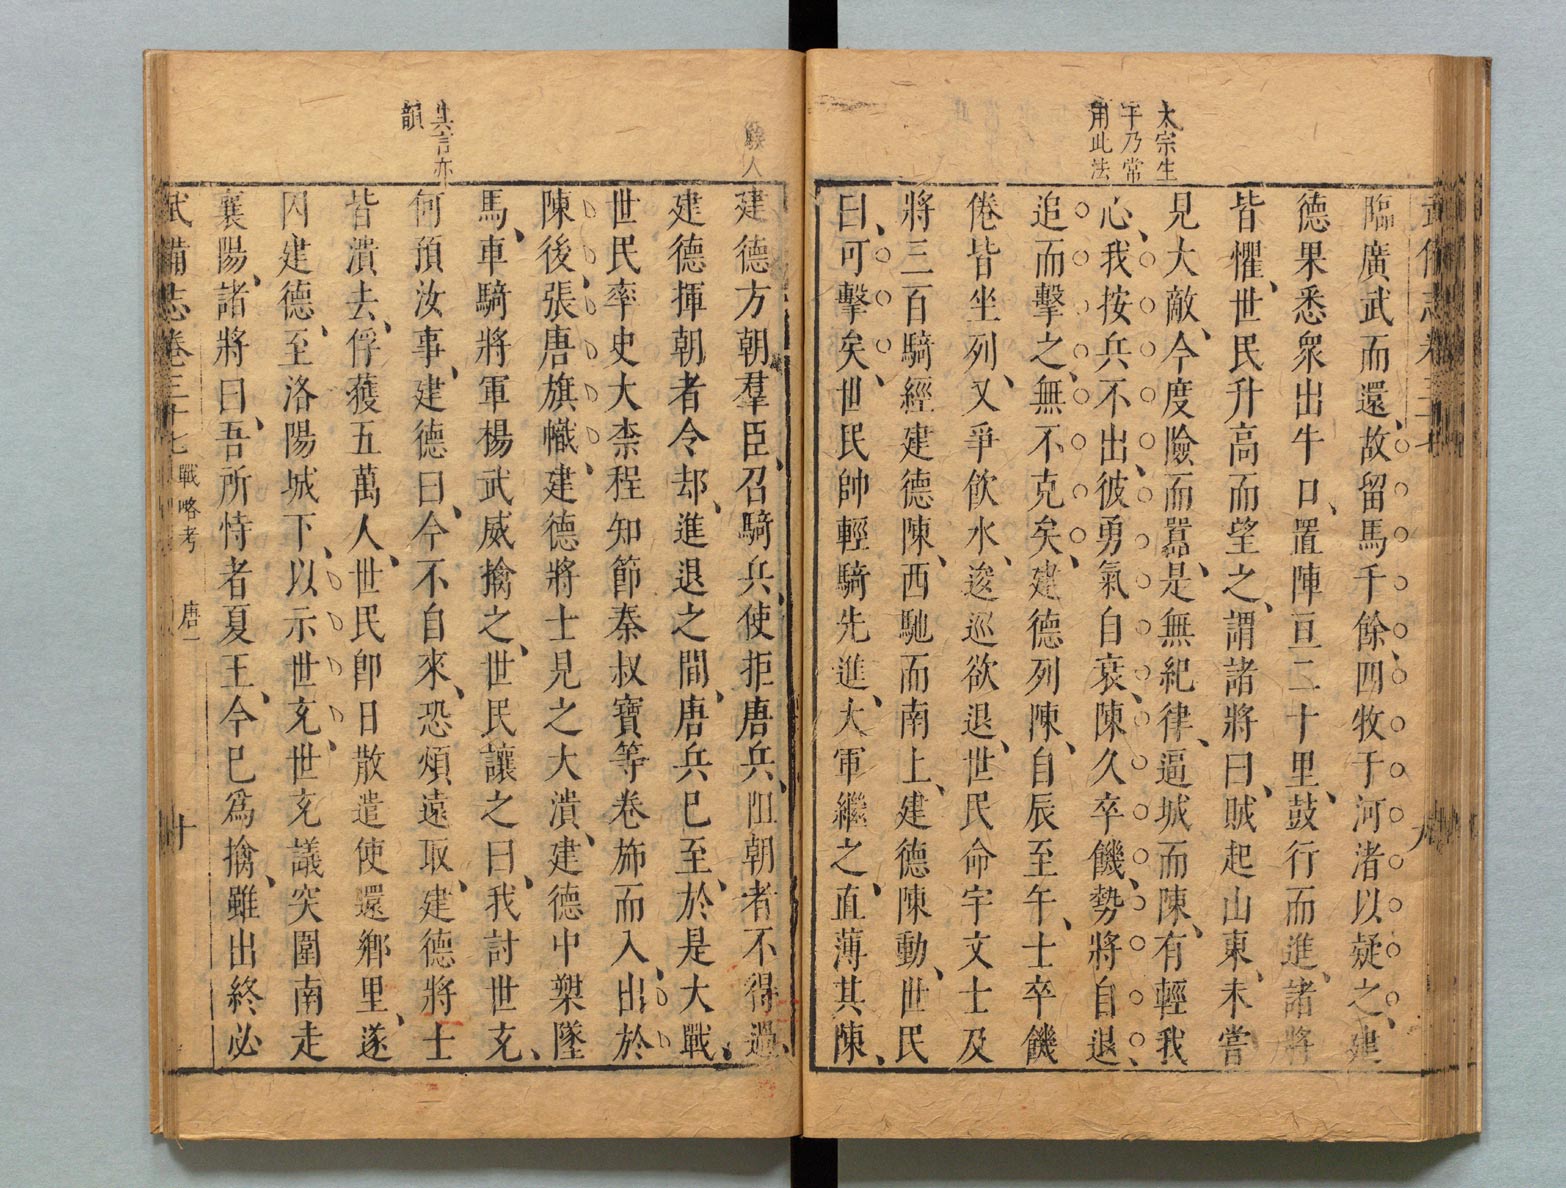 太宗生
平乃常
用此法
武備志卷三十七
九
臨廣武而還、故留馬千餘、四牧于河渚以疑之、建
德果悉眾出牛口、置陣亘二十里、鼓行而進、諸將
皆懼、世民升高而望之、謂諸將曰、賊起山東、未嘗
見大敵、今度險而囂、是無紀律、逼城而陳、有輕我
心、我按兵不出、彼勇氣自衰、陳久卒饑、勢將自退、
追而擊之、無不克矣、建德列陳、自辰至午、士卒饑
倦皆坐列、又爭飲水、逡巡欲退、世民命宇文士及
將三百騎經建德陳、西馳而南上、建德陳動、世民
曰、可擊矣、世民帥輕騎先進、大軍繼之、直薄其陳、
駭人
其言亦
韻
建德方朝羣臣、召騎兵、使拒唐兵、阻朝者不得過、
建德揮朝者令却、進退之間、唐兵已至、於是大戰、
世民率史大柰程知節秦叔寶等卷斾而入、出於
陳後、張唐旗幟、建德將士見之大潰、建德中槊墜
馬、車騎將軍楊武威擒之、世民讓之曰、我討世充、
何預汝事、建德曰、今不自來、恐煩遠取、建德將士
皆潰去、俘獲五萬人、世民卽日散遣使還鄉里、遂
囚建德、至洛陽城下、以示世充、世充議突圍南走
襄陽、諸將曰、吾所恃者夏王、今已爲擒、雖出終必
武備志卷三十七 戰略考 唐一 十